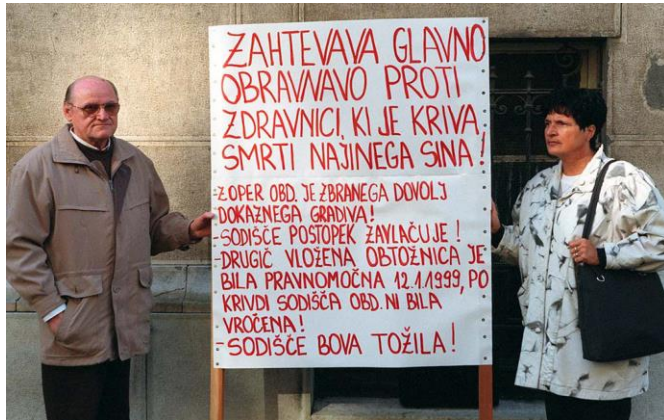 ZAHTEVAVA GLAVNO
OBRAVNAVO PROTI
ZDRAVNICI, KI JE KRIVA
SMRTI NAJINEGA SINA!
-ZOPER OBD. JE ZBRANEGA DOVOLJ
DOKAZNEGA GRADIVA!
-SODIŠČE POSTOPEK ZAVLAČUJE!
-DRUGIČ VLOŽENA OBTOŽNICA JE
BILA PRAVNOMOČNA 12.1.1999, PO
KRIVDI SODIŠČA OBD. NI BILA
VROČENA!
-SODIŠČE BOVA TOŽILA!